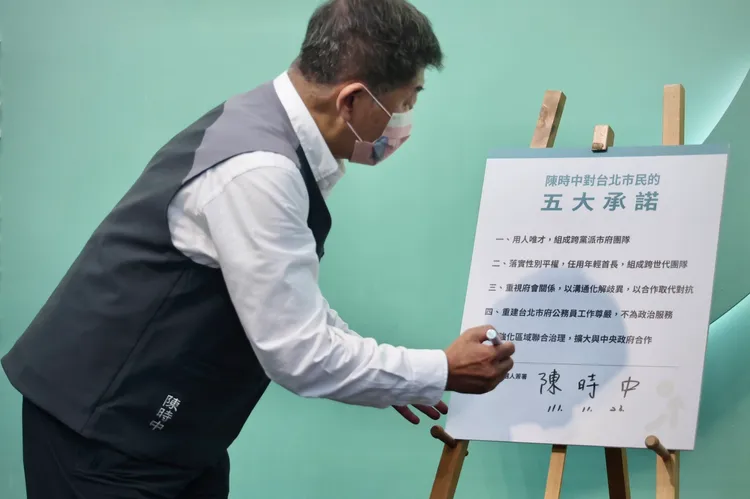 陳時中對台北市民的
五大承諾
一、用人唯才，組成跨黨派市府團隊
二、落實性別平權，任用年輕首長，組成跨世代團隊
三、重視府會關係，以溝通化解歧異，以合作取代對抗
四、重建台北市府公務員工作尊嚴，不為政治服務
強化區域聯合治理，擴大與中央政府合作
人簽署
陳時中
陳時中